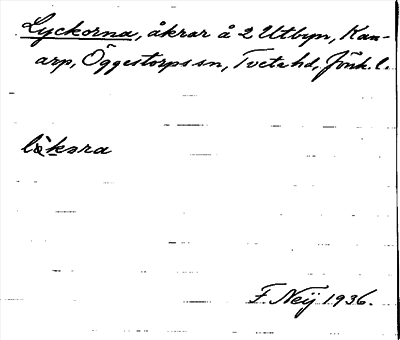 Lyckorna, åkrar å 2 Utbyn, Kan-
arp, Öggestorps sn, Tveta hd, Jönk. l.
F. Neij 1936.